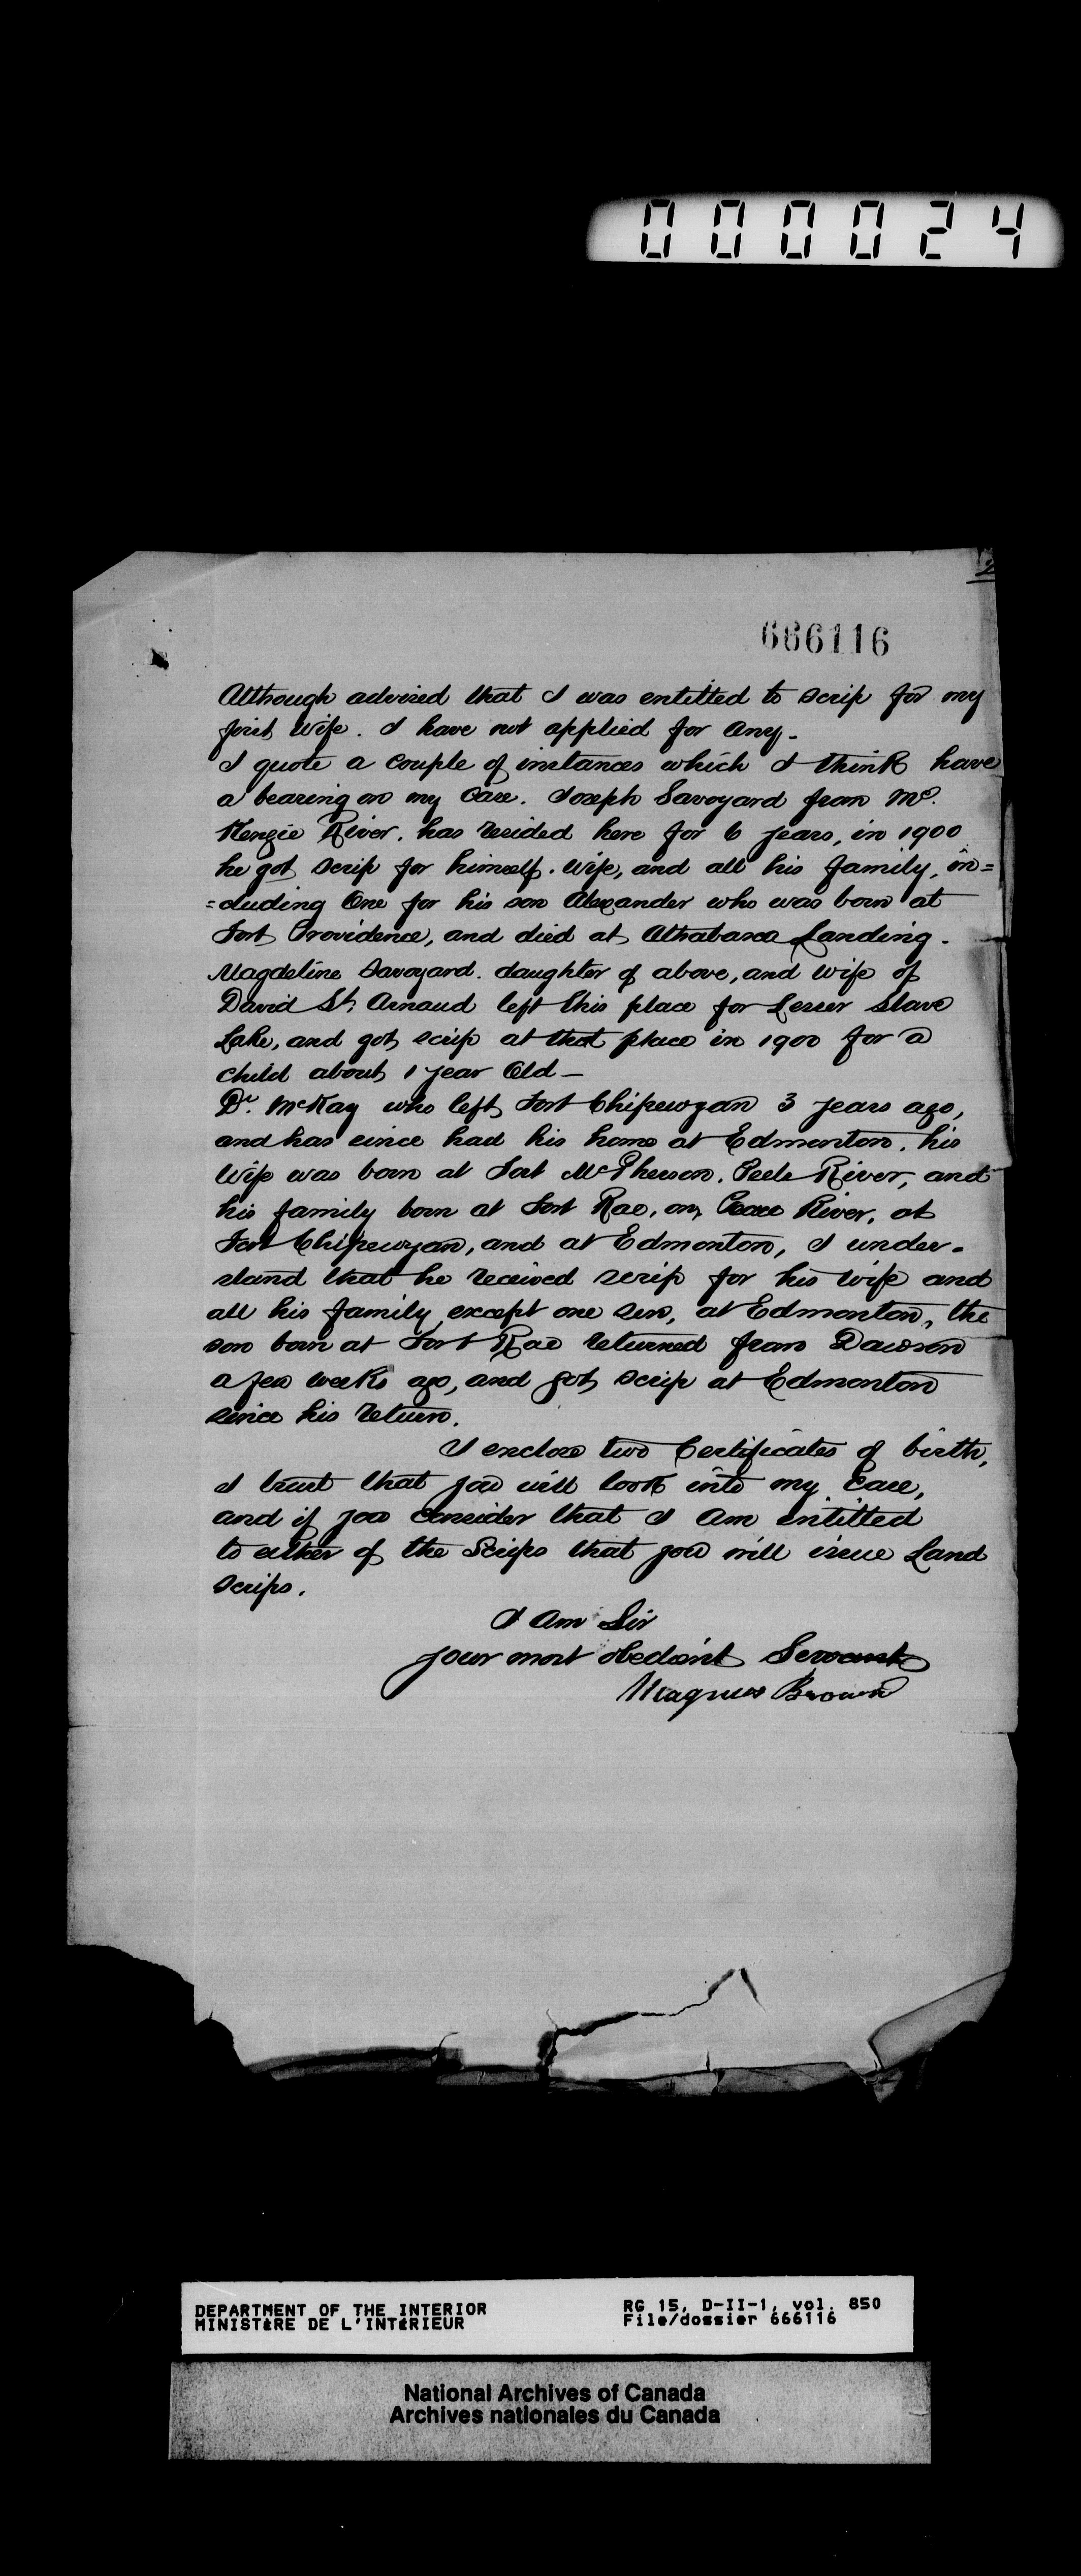 000024
2
666116
Although advised that I was entitled to scrip for my
first wife. I have not applied for any.
I quote a couple of instances which I think have
a bearing on my case. Joseph Savoyard from Mc.
Kenzie River. has resided here for 6 years, in 1900
he got scrip for himself. wife, and all his family, in=
=cluding One for his son Alexander who was born at
Fort Providence, and died at Athabasca Landing.
Magdeline Savoyard. daughter of above, and wife of
David St. Arnaud left this place for Lesser Slave
Lake, and got scrip at that place in 1900 for a
child about 1 year Old —
Dr. McKay who left Fort Chipewyan 3 years ago,
and has since had his home at Edmonton. his
Wife was born at Fort McPherson. Peele River, and
his family born at Fort Rae, on Peace River, at
Fort Chipewyan, and at Edmonton, I under-
stand that he received scrip for his wife and
all his family except one son, at Edmonton, the
son born at Fort Rae returned from Dawson
a few weeks ago, and got scrip at Edmonton
since his return.
I enclose two Certificates of birth,
I trust that you will look into my Case,
and if you consider that I am entitled
to either of the Scrips that you will issue Land
Scrips.
I am Sir
your most obedient Servant
Magnus Brown
DEPARTMENT OF THE INTERIOR
MINISTÈRE DE L'INTÉRIEUR
RG 15, D-II-1, vol. 850
File/dossier 666116
National Archives of Canada
Archives nationales du Canada